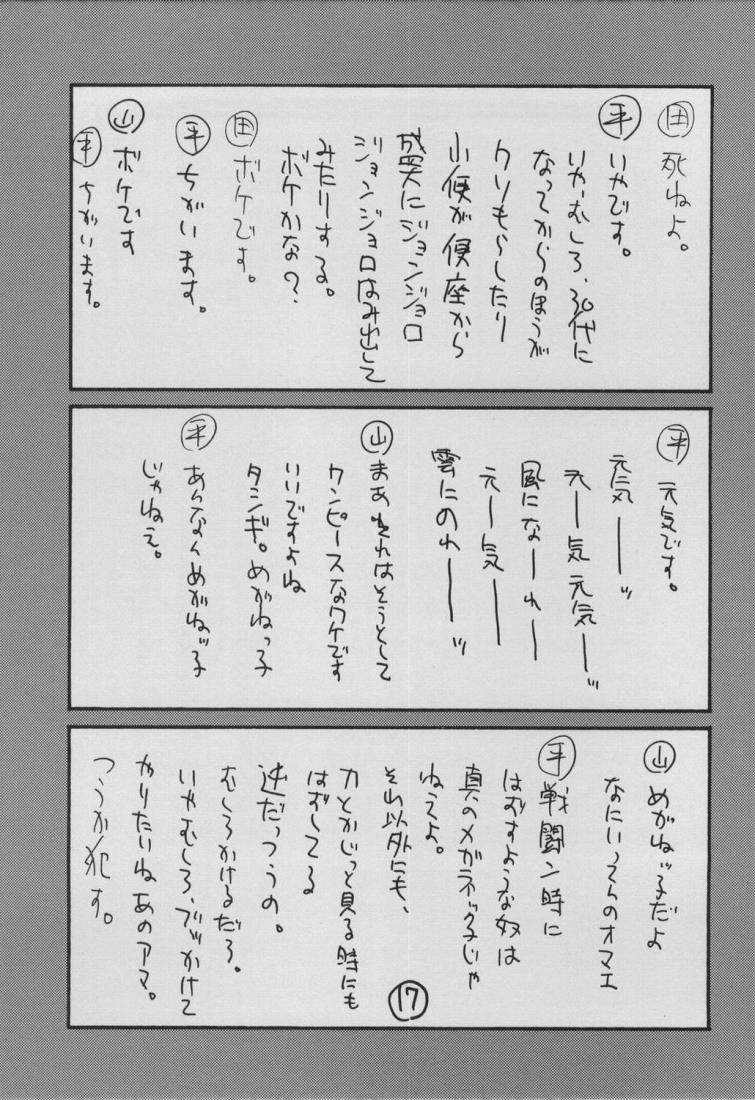 田 死ねよ。
平 いやです。
いや、むしろ、30代に
なってからのほうが
クソもらしたり
小便が便座から
盛大にジョンジョロ
ジョンジョロはみ出して
みたりする。
ボケかな？
田 ボケです。
平 ちがいます。
山 ボケです
平 ちがいます。
平 元気です。
元気――ッ
元―気 元気――ッ
風にな―れ―
元―気――
雲にのれ――ッ
山 まあそれはそうとして
ワンピースなワケです
いいですよね
タシギ。めがねっ子
平 あんなんめがねッ子
じゃねえ。
山 めがねッ子だよ
なにいってんのオマエ
平 戦闘ン時に
はずすような奴は
真のメガネッ子じゃ
ねえよ。
それ以外にも、
刀とかじっと見る時にも
はずしてる
逆だっつうの。
むしろかけるだろ。
いやむしろ、ブッかけて
やりたいねあのアマ。
つうか犯す。
17